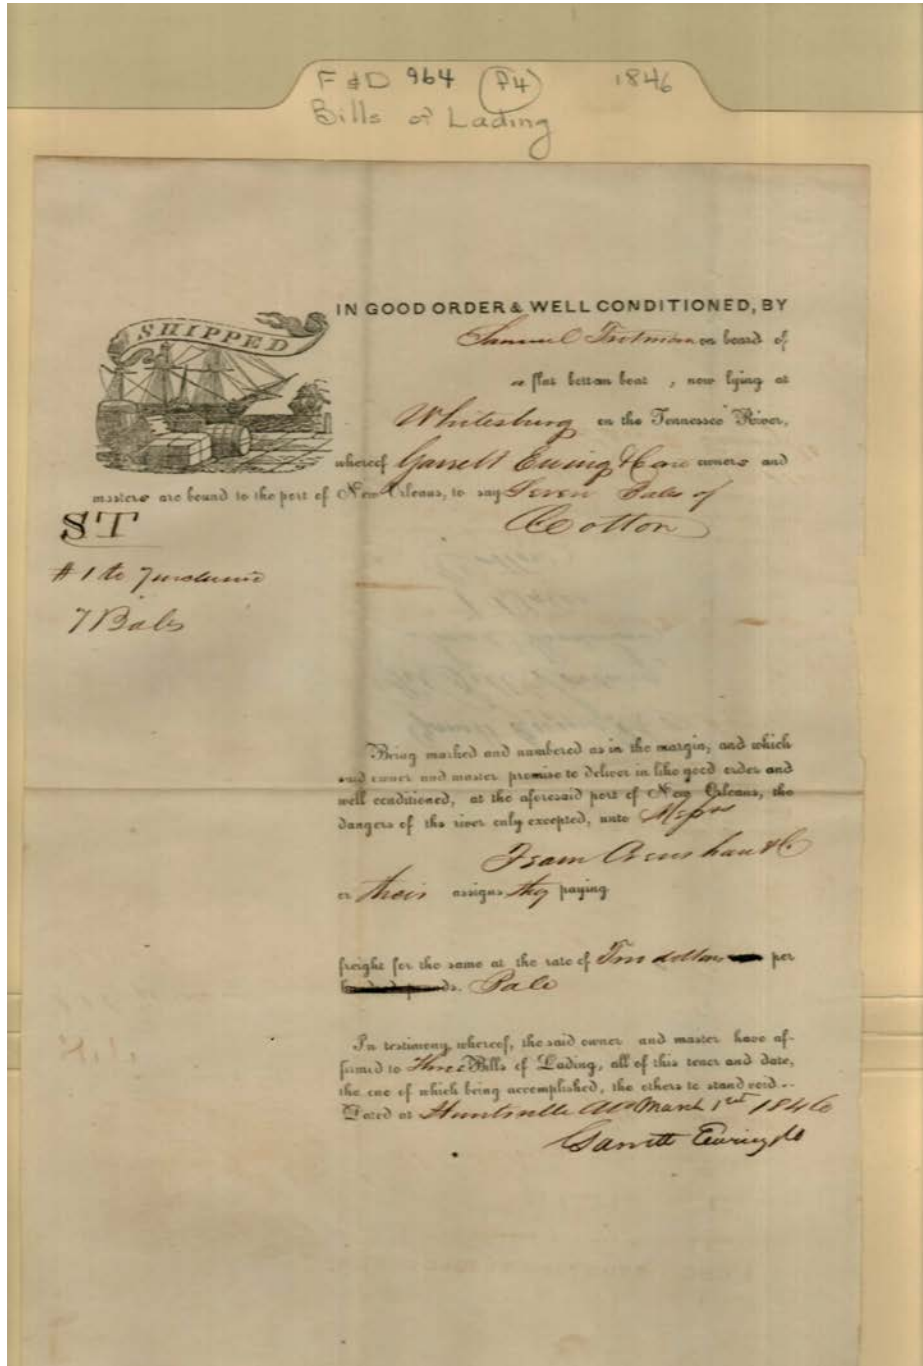 F & D 964 (P4) 1846
Bills of Lading
SHIPPED
IN GOOD ORDER & WELL CONDITIONED, BY
Samuel Trotman on board of
a flat bottom boat, now lying at
Whitesburg on the Tennessee River,
whereof Garrett Ewing & Co are owners and
masters are bound to the port of New Orleans, to say Seven Bales of
Cotton
ST
# 1 to 7 inclusive
7 Bales
Being marked and numbered as in the margin, and which
said owner and master promise to deliver in like good order and
well conditioned, at the aforesaid port of New Orleans, the
dangers of the river only excepted, unto Messrs
Crenshaw & Co
or their assigns they paying
freight for the same at the rate of dollars per
Bale
In testimony, whereof, the said owner and master have af-
firmed to Three Bills of Lading, all of this tenor and date,
the one of which being accomplished, the others to stand void..
Dated at Huntsville Ala March 1st 1846
Garrett Ewing & Co